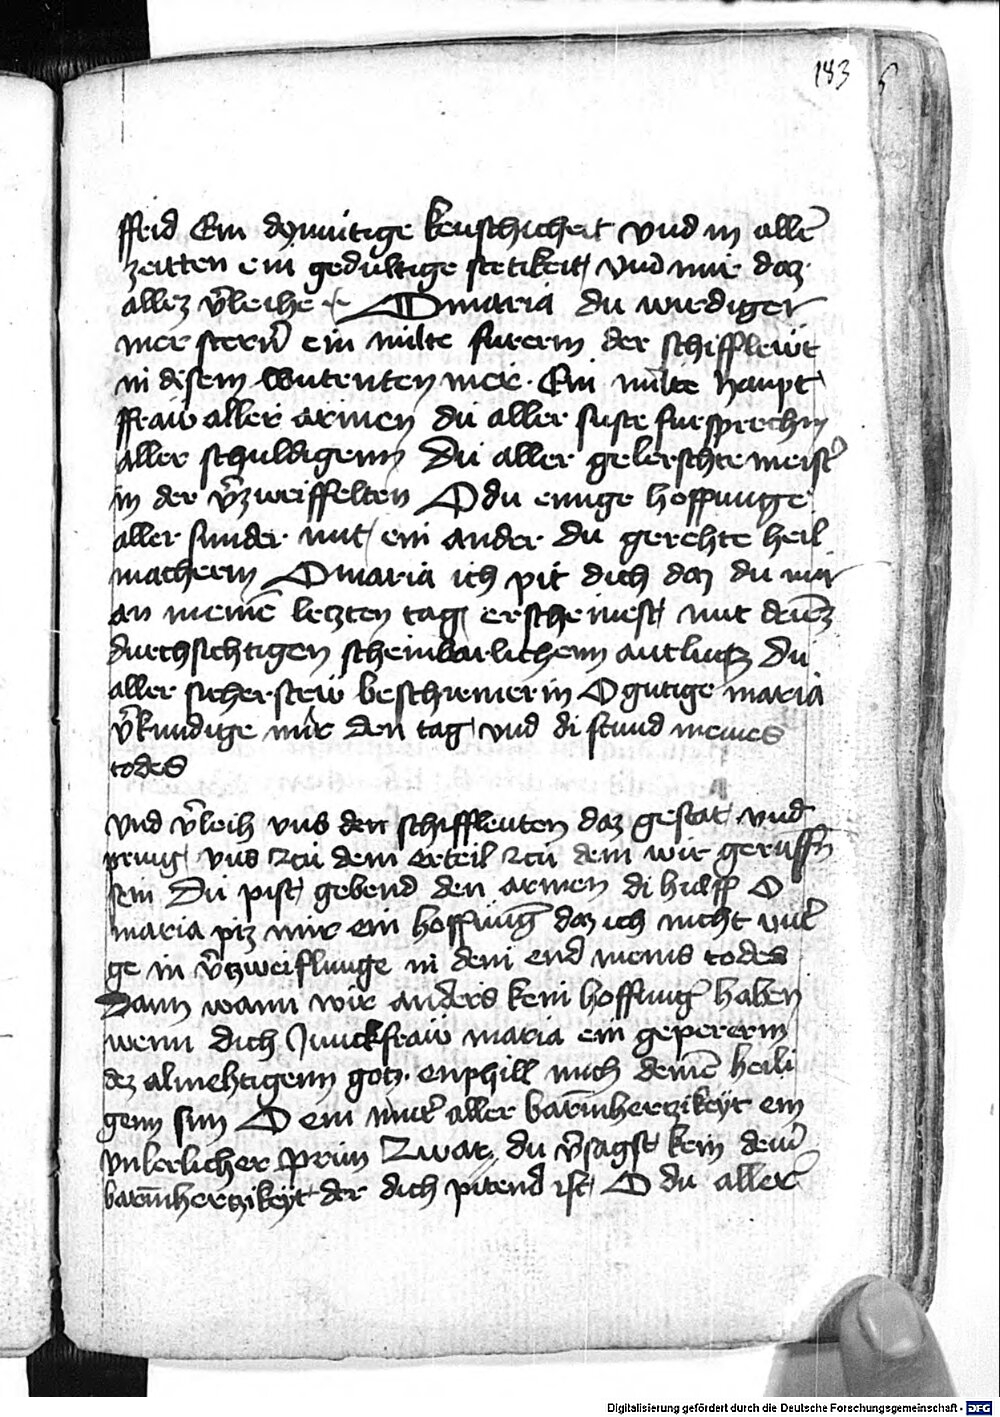 183
ffrid Ein dymutige keuschicheit vnd in aller
zeitten ein gedultige stetikeit vnd mir daz
allez v̄leihe O maria du wirdiger
mer stern̄ ein milte furerin der schifflewt
in disem wutenten mer. Ein milte haupt
ffraw aller armen du aller suste fursprechin
aller schuldigenn Du aller gelerschte meist̄
in der v̄zweiffelten O du einige hoffnunge
aller sunder mit ein ander Du gerehte heil
macherin O maria ich pit dich daz du mir
an meinē letzten tag erscheinest mit deinē
durchsichtigen scheinbarlichenn antlutz Du
aller sicherstew beschirmerin O gutige maria
v̄kundige mir den tag vnd di stund meines
todes
vnd v̄leih vns den schiffleuten daz gestat vnd
pring vns zcu dem erteil zcu dem wir geruffn̄
sein Du pist gebend den armen di hilff O
maria piz mir ein hoffnūg daz ich nicht
ge in v̄tzweiflunge in dem end meins todes
Dann wann wir anders kein hoffnung haben
wenn dich Junckfraw maria ein gepererin
dez almehtigenn gotz. enphill mich deinē heili
genn sun O ein mut̄ aller barm̄hertzikeyt ein
prun Zwar du v̄sagst kein dein̄
barm̄hertzikeyt der dich pitend ist O du aller
Digitalisierung gefördert durch die Deutsche Forschungsgemeinschaft - DFG